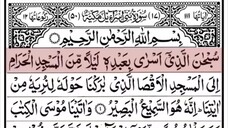 سورة بني اسرآءيل مكية
بسم الله الرحمن الرحيم
سبحن الذي اسرى بعبده ليلا من المسجد الحرام
الى المسجد الاقصا الذي بركنا حوله لنريه من
ايتنا انه هو السميع البصير واتينا موسى الكتب